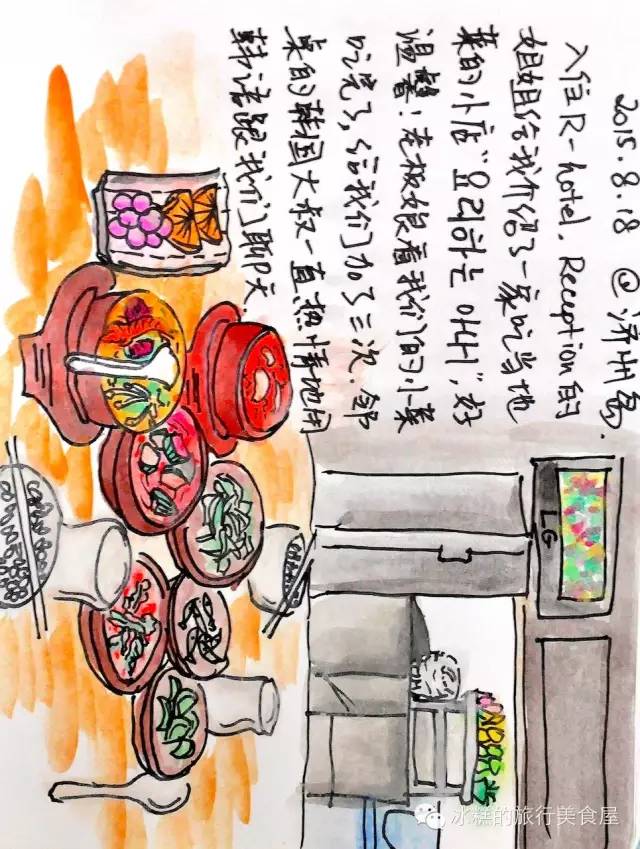 2015.8.18 @济州岛.
入住R-hotel. Reception的
姐姐给我介绍了一家吃当地
菜的小店"요리하는 아내",好
温馨!老板娘看我们的小菜
吃完了,给我们加了三次.邻
桌的韩国大叔一直热情地用
韩语跟我们聊天.
LG
冰糕的旅行美食屋